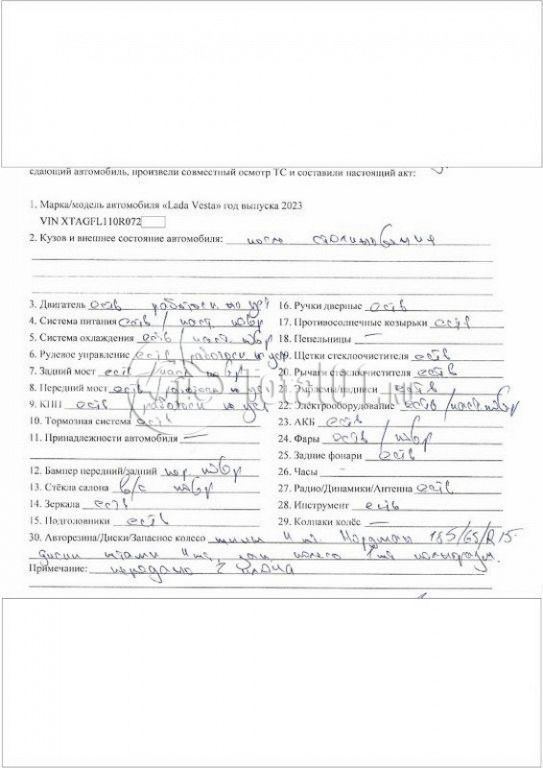 сдающий автомобиль, произвели совместный осмотр ТС и составили настоящий акт:
1. Марка/модель автомобиля «Lada Vesta» год выпуска 2023
VIN XTAGFL110R072
2. Кузов и внешнее состояние автомобиля: после столкновения
3. Двигатель есть работосп не уст
4. Система питания есть / част повр
5. Система охлаждения есть / част повр
6. Рулевое управление есть работосп не уст
7. Задний мост есть / част повр
8. Передний мост есть работосп не уст
9. КПП есть работосп не уст
10. Тормозная система есть
11. Принадлежности автомобиля —
12. Бампер передний/задний пер. повр
13. Стёкла салона в/с повр
14. Зеркала есть
15. Подголовники есть
16. Ручки дверные есть
17. Противосолнечные козырьки есть
18. Пепельницы —
19. Щетки стеклоочистителя есть
20. Рычаги стеклоочистителя есть
21. Эмблемы/надписи есть
22. Электрооборудование есть/част повр
23. АКБ есть
24. Фары есть / повр
25. Задние фонари есть
26. Часы —
27. Радио/Динамики/Антенна есть
28. Инструмент есть
29. Колпаки колёс —
30. Авторезина/Диски/Запасное колесо шины 4 шт Нордман 185/65/R15.
диски штамп 4 шт, зап колесо 1 шт полноразм.
Примечание: передано 2 ключа